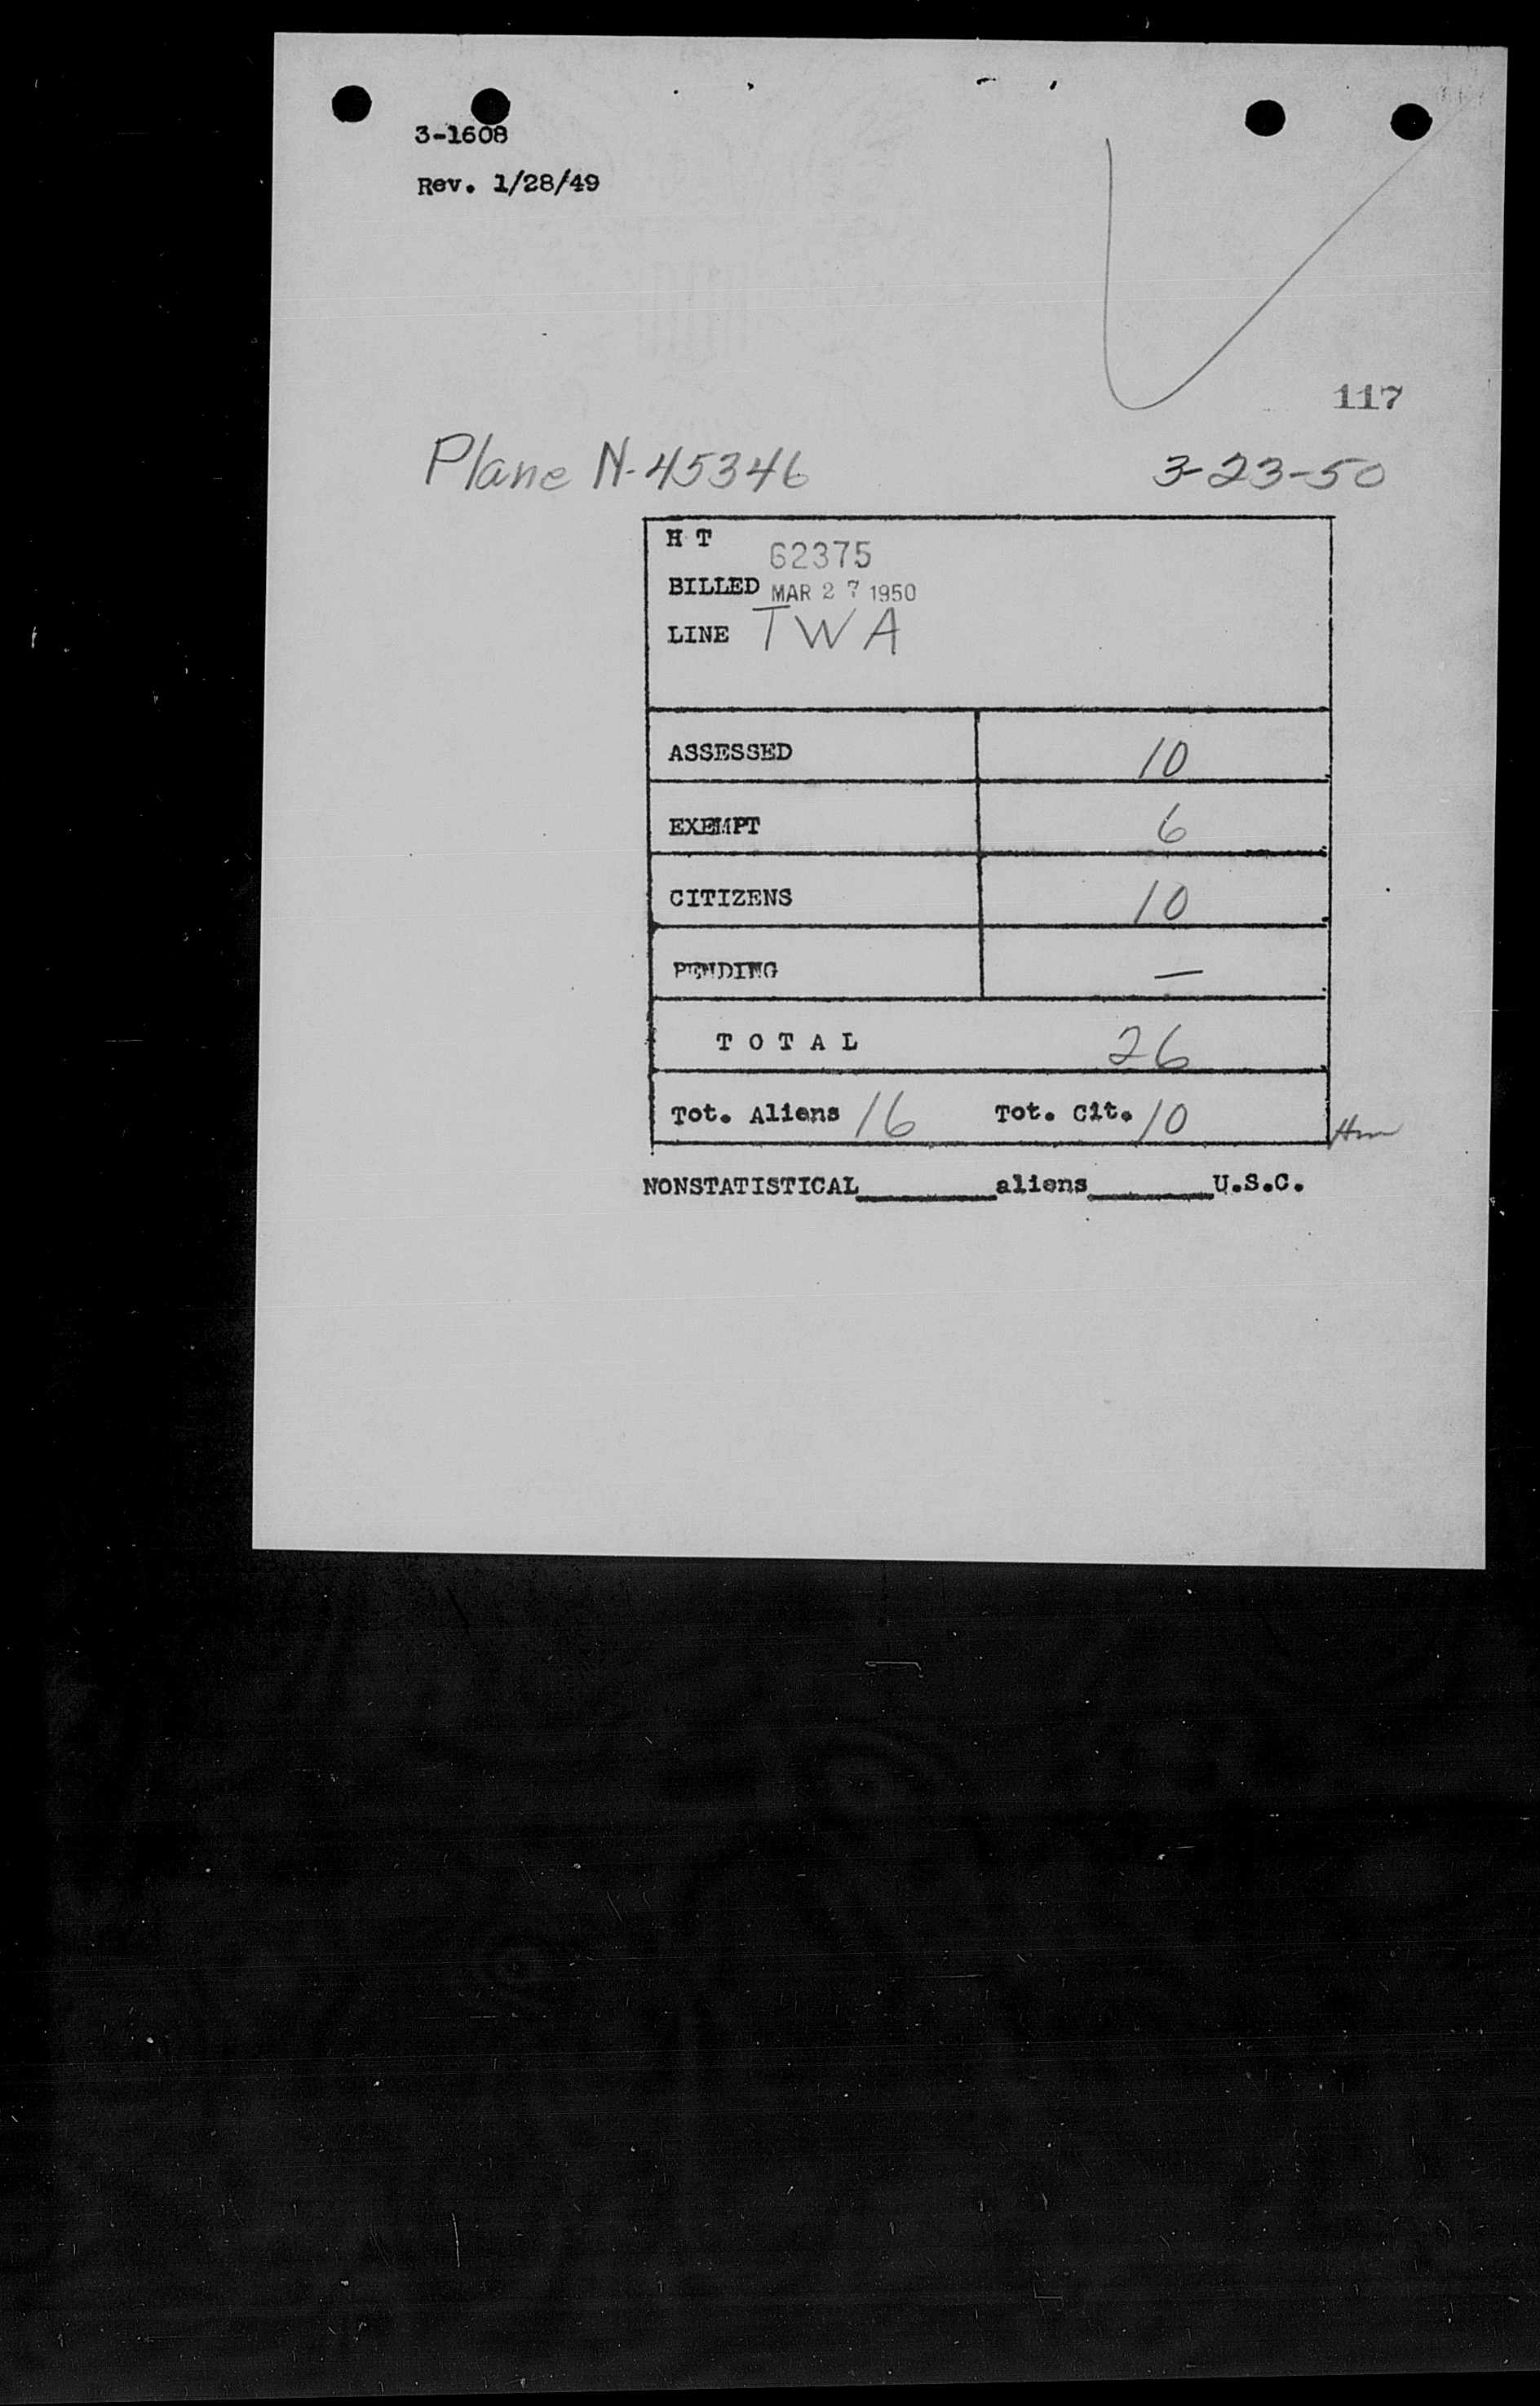 3-1608
Rev. 1/28/49
117
Plane N-45346 3-23-50
H T 62375
BILLED MAR 27 1950
LINE TWA
ASSESSED 10
EXEMPT 6
CITIZENS 10
PENDING —
TOTAL 26
Tot. Aliens 16 Tot. Cit. 10
NONSTATISTICAL________aliens________U.S.C.